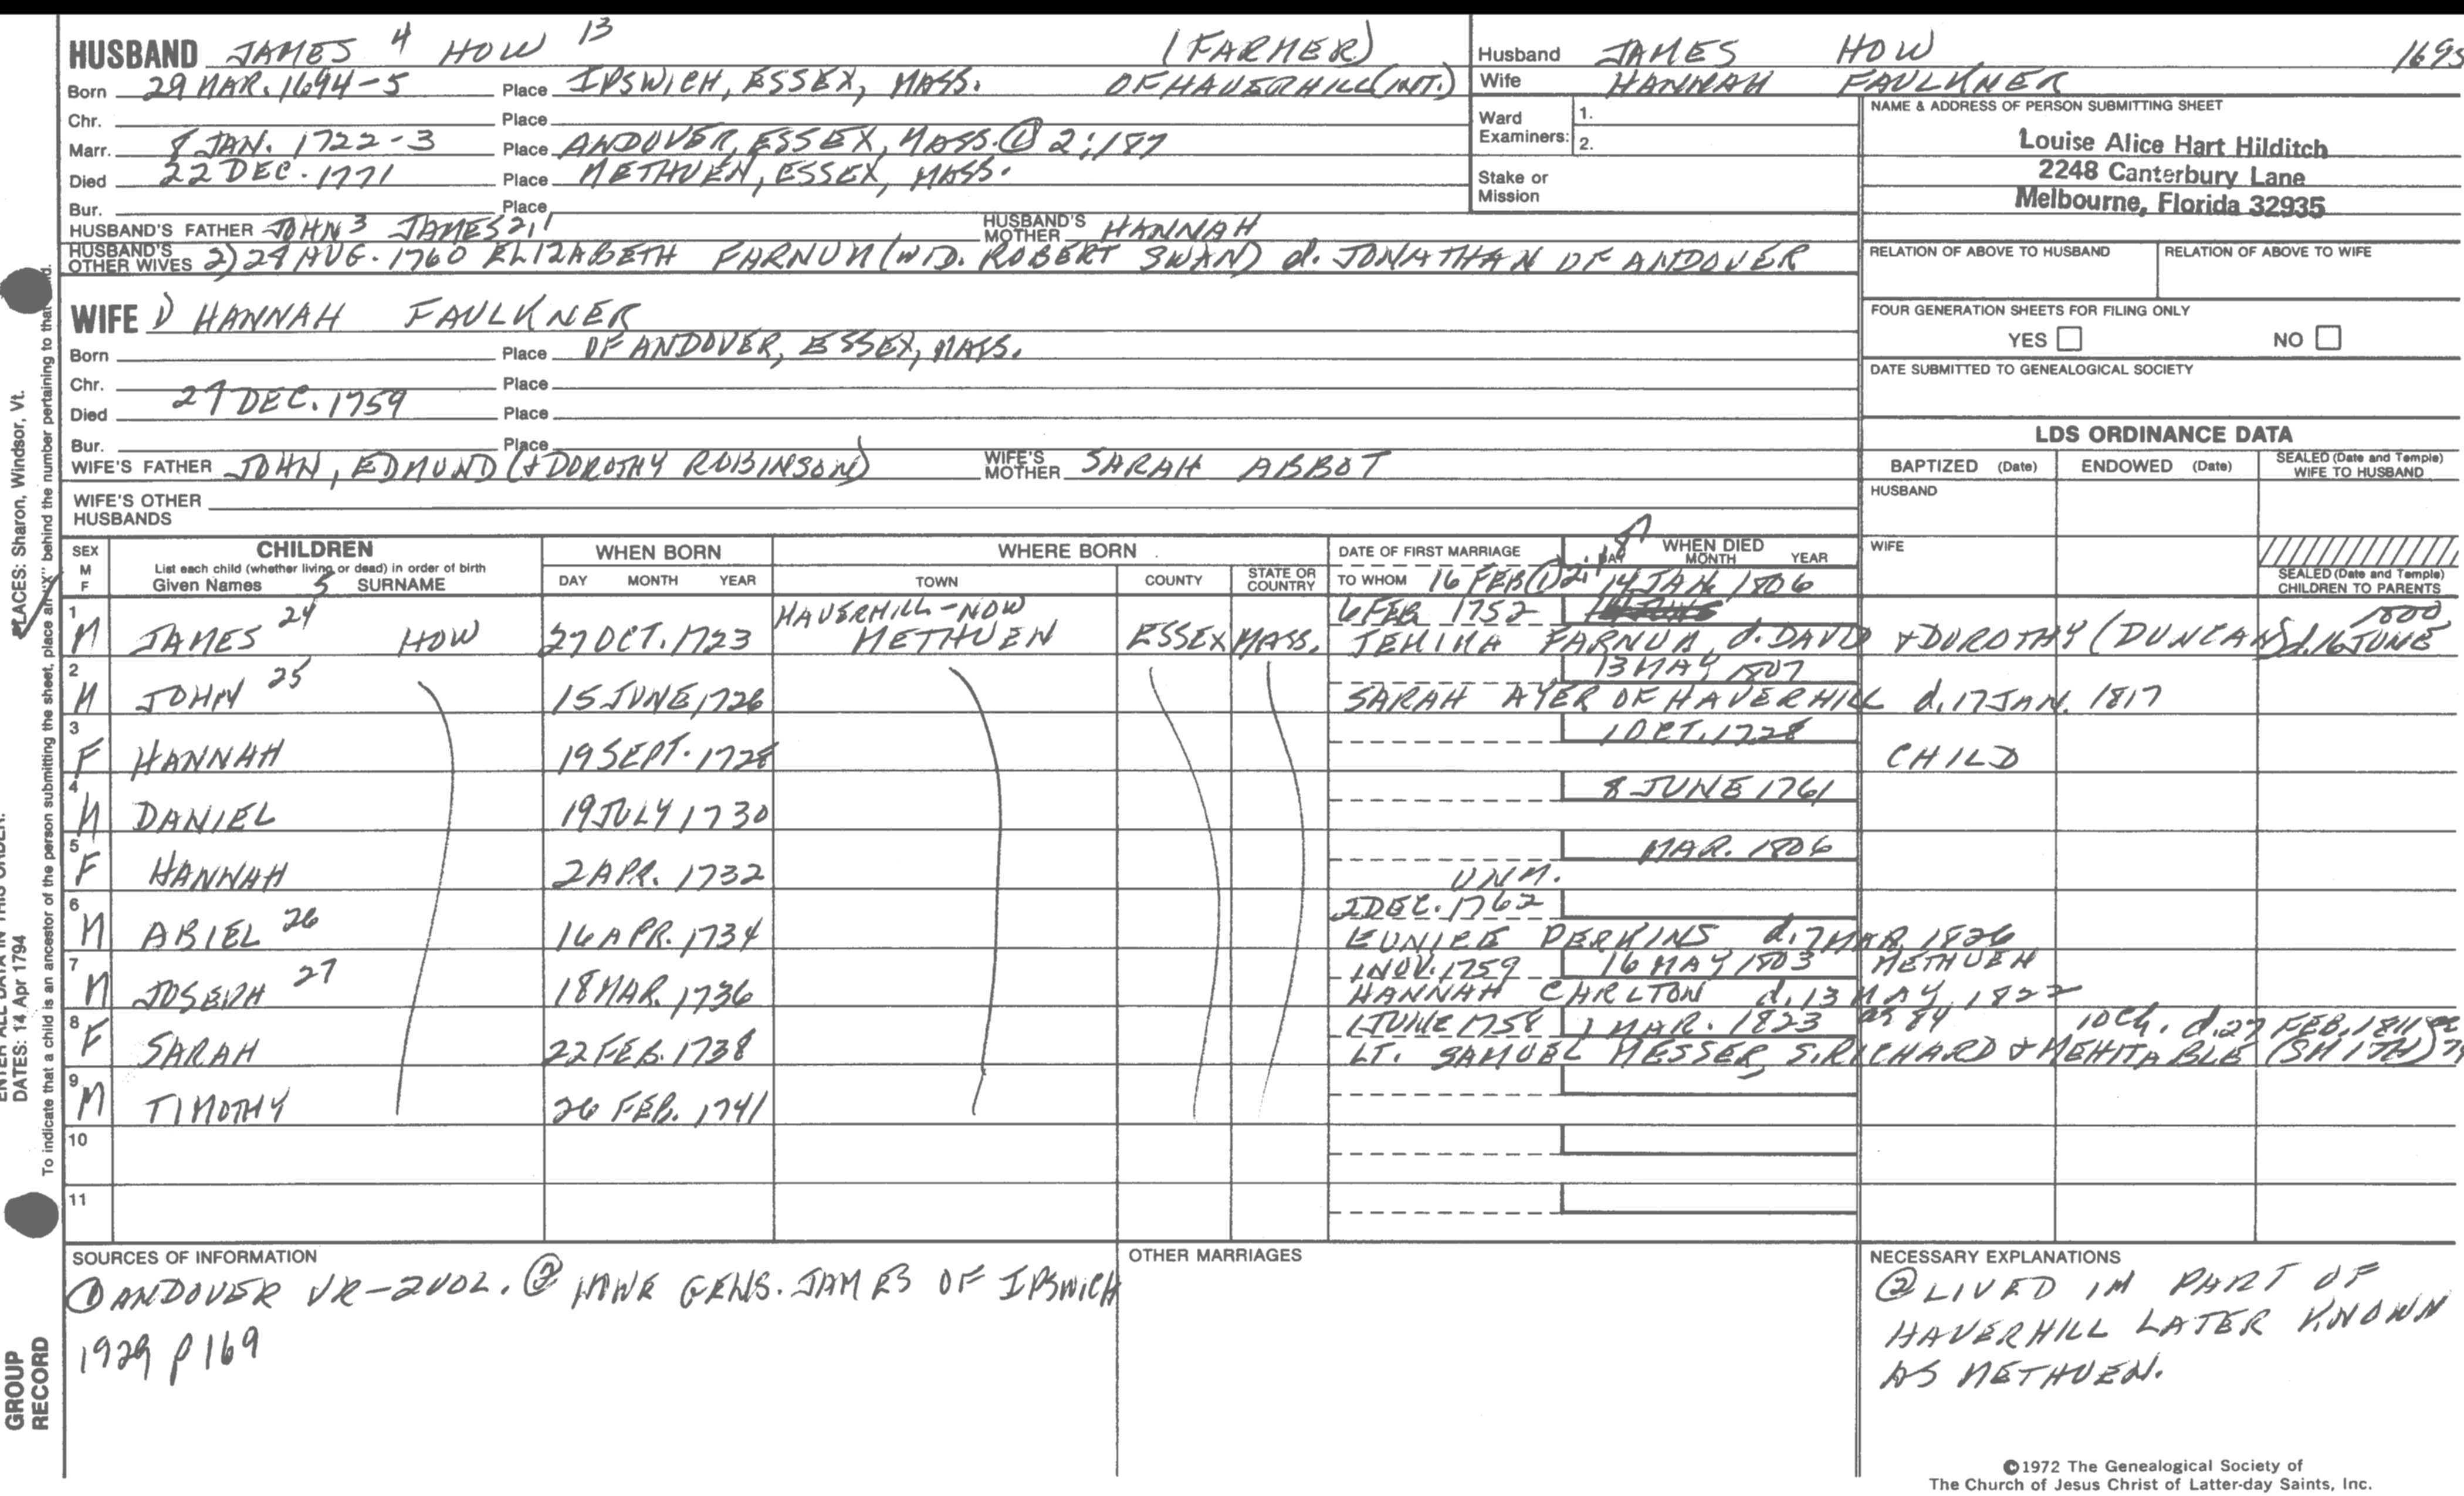 HUSBAND JAMES 4 HOW 13 (FARMER)
Born 29 MAR. 1694-5 Place IPSWICH, ESSEX, MASS. OF HAVERHILL (INT.)
Chr. Place
Marr. 8 JAN. 1722-3 Place ANDOVER, ESSEX, MASS. ① 2:187
Died 22 DEC. 1771 Place METHUEN, ESSEX, MASS.
Bur. Place
HUSBAND'S FATHER JOHN 3 JAMES 2,1 HUSBAND'S MOTHER HANNAH
HUSBAND'S OTHER WIVES 2) 29 AUG. 1760 ELIZABETH FARNUM (WID. ROBERT SWAN) d. JONATHAN OF ANDOVER
WIFE 1) HANNAH FAULKNER
Born Place OF ANDOVER, ESSEX, MASS.
Chr. Place
Died 27 DEC. 1759 Place
Bur. Place
WIFE'S FATHER JOHN, EDMUND (+ DOROTHY ROBINSON) WIFE'S MOTHER SARAH ABBOT
WIFE'S OTHER HUSBANDS
Husband JAMES HOW 1695
Wife HANNAH FAULKNER
Ward Examiners: 1.
2.
Stake or Mission
NAME & ADDRESS OF PERSON SUBMITTING SHEET
Louise Alice Hart Hilditch
2248 Canterbury Lane
Melbourne, Florida 32935
RELATION OF ABOVE TO HUSBAND RELATION OF ABOVE TO WIFE
FOUR GENERATION SHEETS FOR FILING ONLY
YES NO
DATE SUBMITTED TO GENEALOGICAL SOCIETY
LDS ORDINANCE DATA
BAPTIZED (Date) ENDOWED (Date) SEALED (Date and Temple) WIFE TO HUSBAND
HUSBAND
WIFE
SEALED (Date and Temple) CHILDREN TO PARENTS
SEX M F CHILDREN WHEN BORN WHERE BORN DATE OF FIRST MARRIAGE WHEN DIED
List each child (whether living or dead) in order of birth
Given Names 5 SURNAME DAY MONTH YEAR TOWN COUNTY STATE OR COUNTRY TO WHOM DAY MONTH YEAR
16 FEB ① 2: 14 JAN 1806
1 M JAMES 24 HOW 27 OCT. 1723 HAVERHILL-NOW METHUEN ESSEX MASS. 6 FEB 1752
JEMIMA FARNUM, d. DAVID + DOROTHY (DUNCAN) d. 16 JUNE 1800
2 M JOHN 25 15 JUNE 1726 13 MAY 1807
SARAH AYER OF HAVERHILL d. 17 JAN. 1817
3 F HANNAH 19 SEPT. 1728 1 OCT. 1728 CHILD
4 M DANIEL 19 JULY 1730 8 JUNE 1761
5 F HANNAH 2 APR. 1732 MAR. 1806
UNM.
6 M ABIEL 26 16 APR. 1734 2 DEC. 1762
EUNICE PERKINS d. 7 MAR. 1826
7 M JOSEPH 27 18 MAR. 1736 1 NOV. 1759 16 MAY 1803 METHUEN
HANNAH CARLTON d. 13 MAY 1822
8 F SARAH 22 FEB. 1738 1 JUNE 1758 1 MAR. 1823 as 84 10 Ch. d. 27 FEB. 1811
LT. SAMUEL MESSER, S. RICHARD + MEHITABLE (SMITH)
9 M TIMOTHY 26 FEB. 1741
10
11
SOURCES OF INFORMATION
① ANDOVER VR-2 VOL. ② HOWE GENS. JAMES OF IPSWICH
1929 p 169
OTHER MARRIAGES
NECESSARY EXPLANATIONS
② LIVED IN PART OF
HAVERHILL LATER KNOWN
AS METHUEN.
©1972 The Genealogical Society of
The Church of Jesus Christ of Latter-day Saints, Inc.
PLACES: Sharon, Windsor, Vt.
To indicate that a child is an ancestor of the person submitting the sheet, place an "X" behind the number pertaining to that
ENTER ALL DATA IN THIS ORDER:
DATES: 14 Apr 1794
GROUP
RECORD